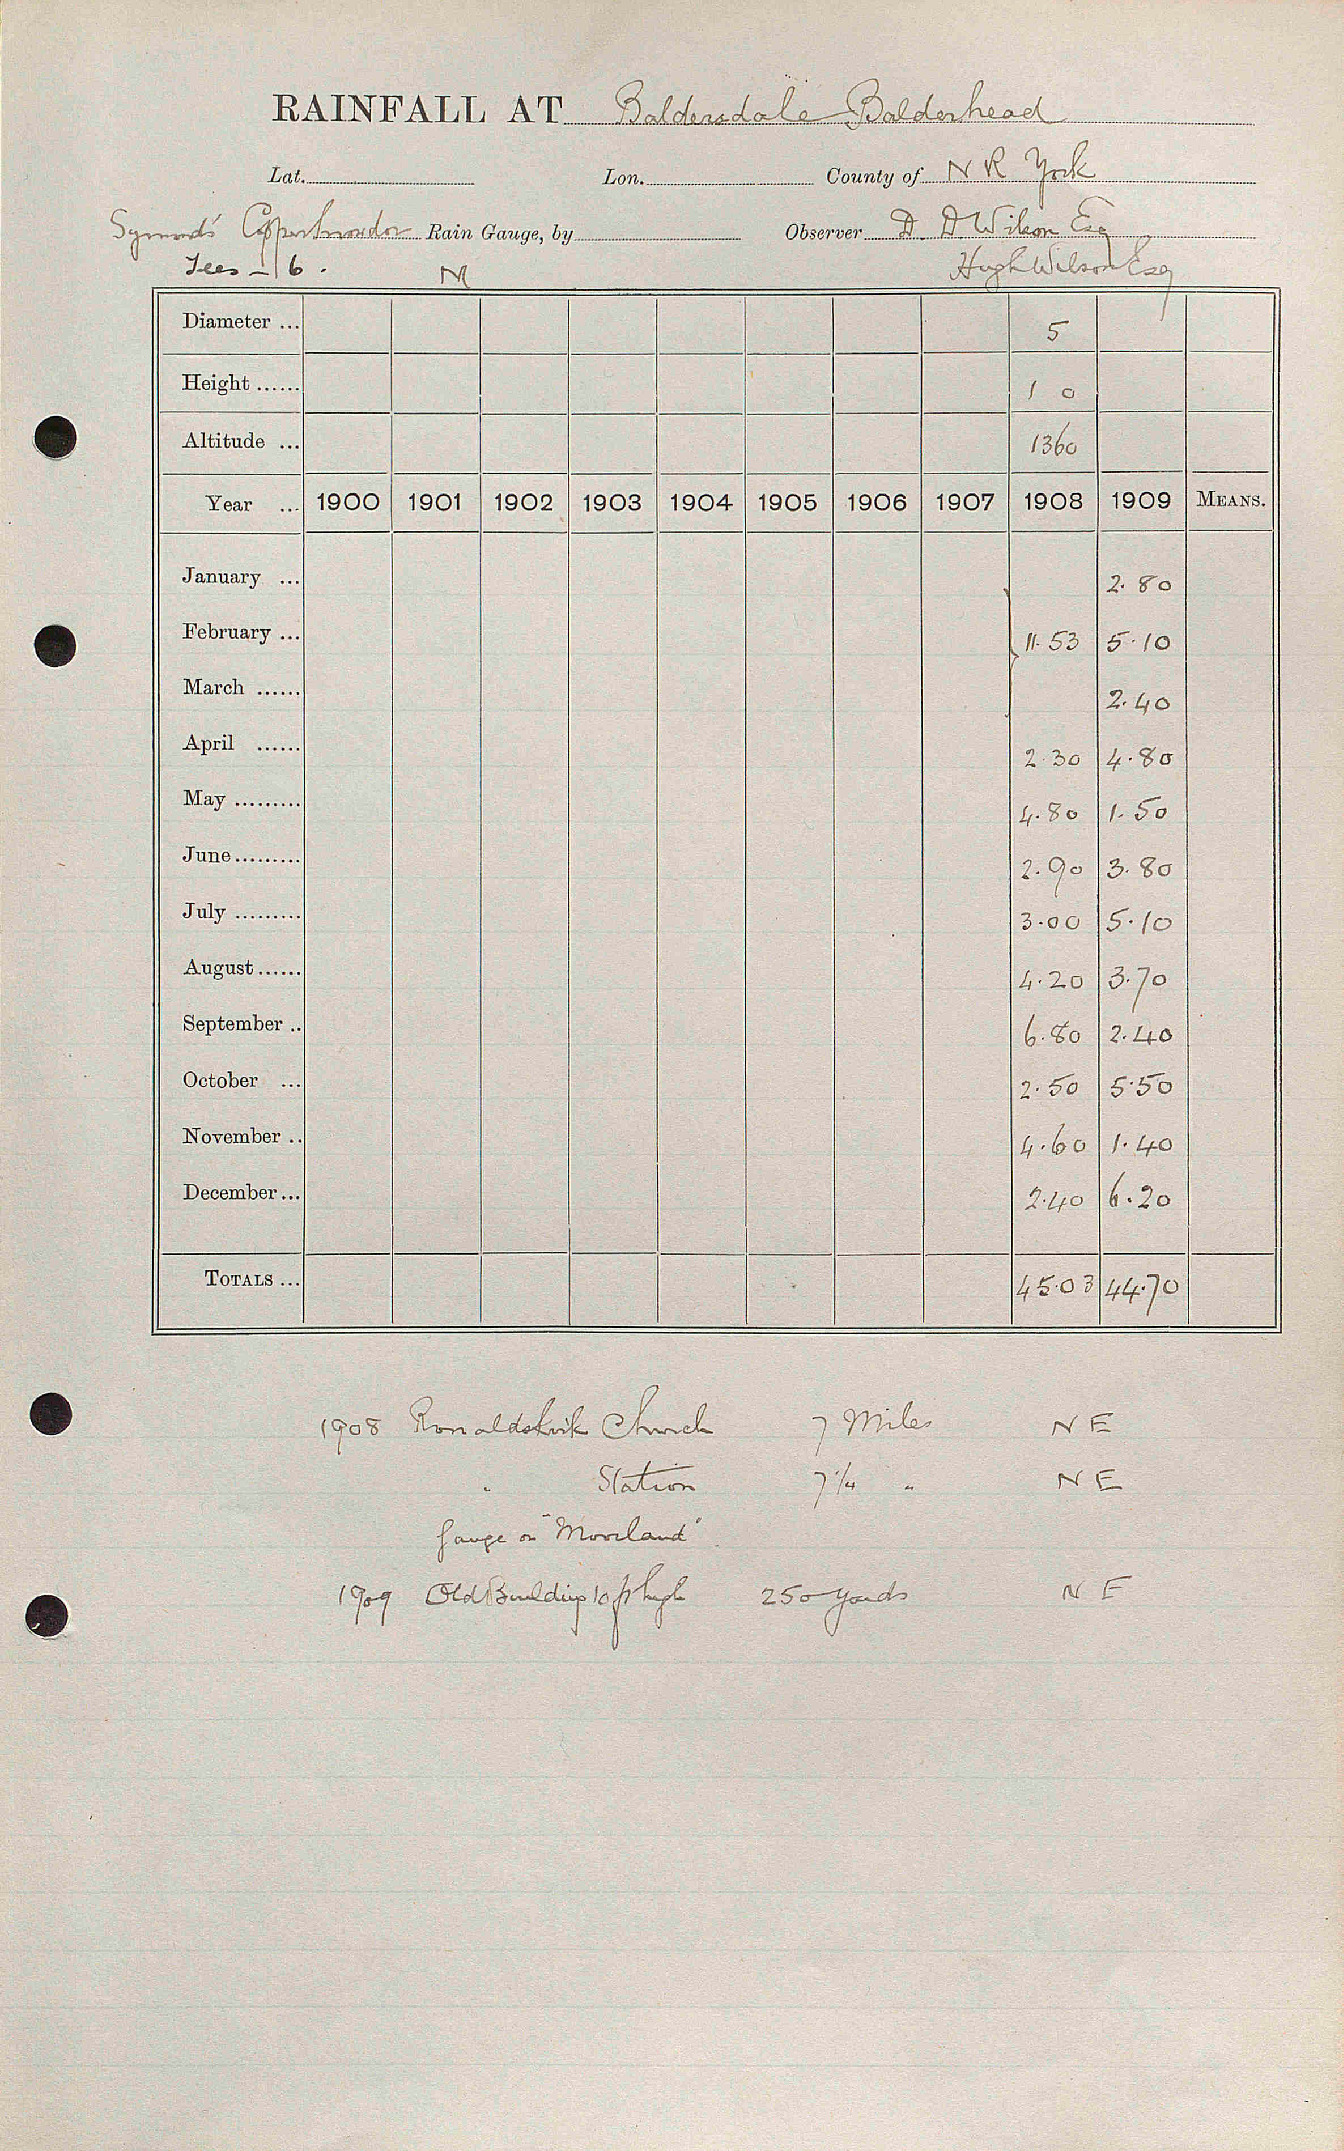 RAINFALL AT Baldersdale Balderhead
Lat. Lon. County of N R York
Symons' Rain Gauge, by Observer D. D Wilson Esq
Tees - 6. M Hugh Wilson Esq
Diameter ... 5
Height ...... 1 0
Altitude ... 1360
Year ... 1900 1901 1902 1903 1904 1905 1906 1907 1908 1909 MEANS.
January ... 2.80
February ... 11.53 5.10
March ...... 2.40
April ...... 2.30 4.80
May ......... 4.80 1.50
June ......... 2.90 3.80
July ......... 3.00 5.10
August ...... 4.20 3.70
September .. 6.80 2.40
October ... 2.50 5.50
November .. 4.60 1.40
December ... 2.40 6.20
TOTALS ... 45.03 44.70
1908 Romaldskirk Church 7 Miles N E
" Station 7 1/4 " N E
Gauge on "Moorland".
1909 Old Building 10 ft high 250 yards N E